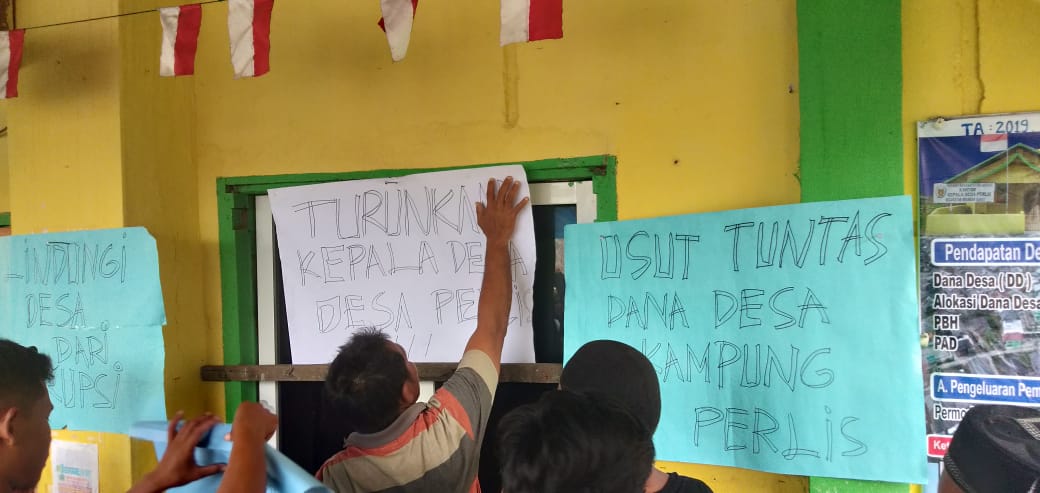 LINDUNGI
DESA
DARI
UPSI
TURUNKA
KEPALA DESA
DESA PERLIS
!!
USUT TUNTAS
DANA DESA
KAMPUNG
PERLIS
TA : 2019
KEPALA DESA PERLIS
Pendapatan De
Dana Desa ( DD )
Alokasi Dana Desa
PBH
PAD
A. Pengeluaran Pem